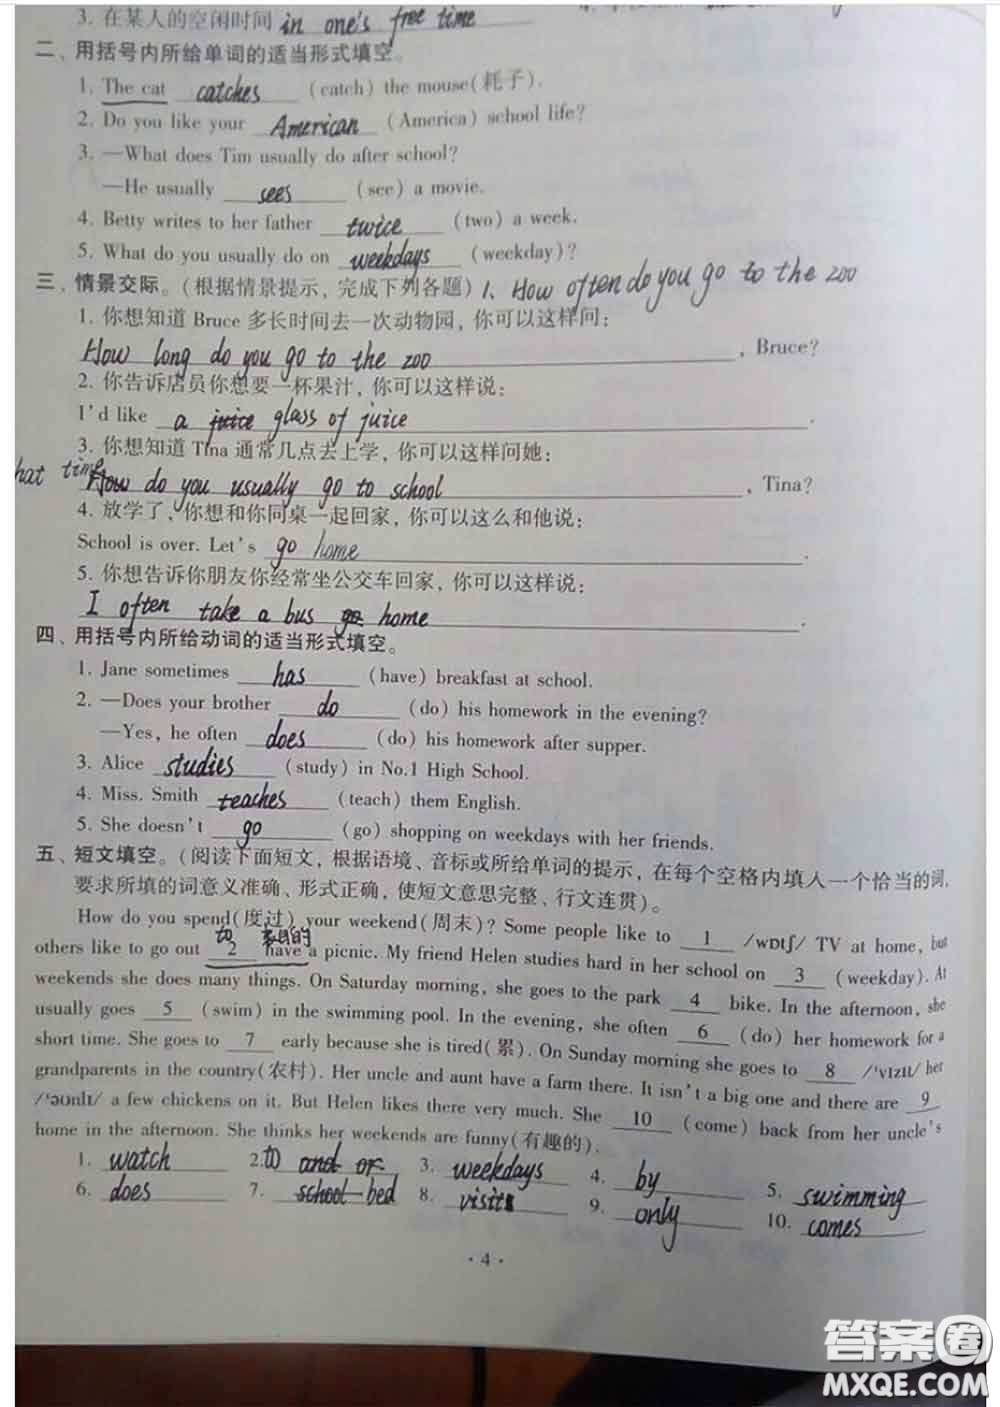 3. 在某人的空闲时间 in one's free time
二、用括号内所给单词的适当形式填空。
1. The cat catches (catch) the mouse(耗子).
2. Do you like your American (America) school life?
3. —What does Tim usually do after school?
—He usually sees (see) a movie.
4. Betty writes to her father twice (two) a week.
5. What do you usually do on weekdays (weekday)?
三、情景交际。(根据情景提示，完成下列各题) 1. How often do you go to the zoo
1. 你想知道 Bruce 多长时间去一次动物园，你可以这样问：
How long do you go to the zoo, Bruce?
2. 你告诉店员你想要一杯果汁，你可以这样说：
I'd like a juice glass of juice.
3. 你想知道 Tina 通常几点去上学，你可以这样问她：
hat time
How do you usually go to school, Tina?
4. 放学了，你想和你同桌一起回家，你可以这么和他说：
School is over. Let's go home.
5. 你想告诉你朋友你经常坐公交车回家，你可以这样说：
I often take a bus go home.
四、用括号内所给动词的适当形式填空。
1. Jane sometimes has (have) breakfast at school.
2. —Does your brother do (do) his homework in the evening?
—Yes, he often does (do) his homework after supper.
3. Alice studies (study) in No.1 High School.
4. Miss. Smith teaches (teach) them English.
5. She doesn't go (go) shopping on weekdays with her friends.
五、短文填空。(阅读下面短文，根据语境、音标或所给单词的提示，在每个空格内填入一个恰当的词，
要求所填的词意义准确、形式正确，使短文意思完整、行文连贯)。
How do you spend(度过) your weekend(周末)? Some people like to 1 /wɒtʃ/ TV at home, but
others like to go out 2 have a picnic. My friend Helen studies hard in her school on 3 (weekday). At
weekends she does many things. On Saturday morning, she goes to the park 4 bike. In the afternoon, she
usually goes 5 (swim) in the swimming pool. In the evening, she often 6 (do) her homework for a
short time. She goes to 7 early because she is tired(累). On Sunday morning she goes to 8 /'vɪzɪt/ her
grandparents in the country(农村). Her uncle and aunt have a farm there. It isn't a big one and there are 9
/'əʊnlɪ/ a few chickens on it. But Helen likes there very much. She 10 (come) back from her uncle's
home in the afternoon. She thinks her weekends are funny(有趣的).
1. watch 2. to and or 3. weekdays 4. by 5. swimming
6. does 7. school bed 8. visit 9. only 10. comes
· 4 ·
答案圈
MXQE.COM